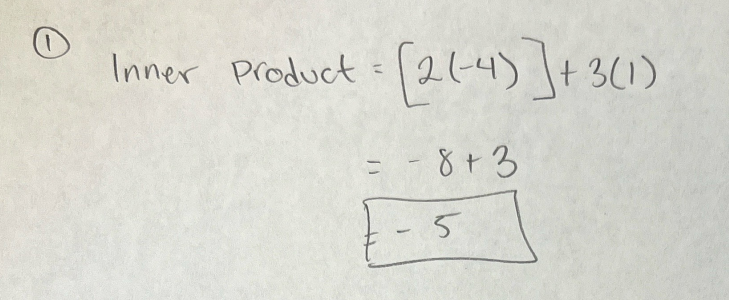 ① Inner Product = [2(-4)] + 3(1)
= - 8 + 3
= - 5